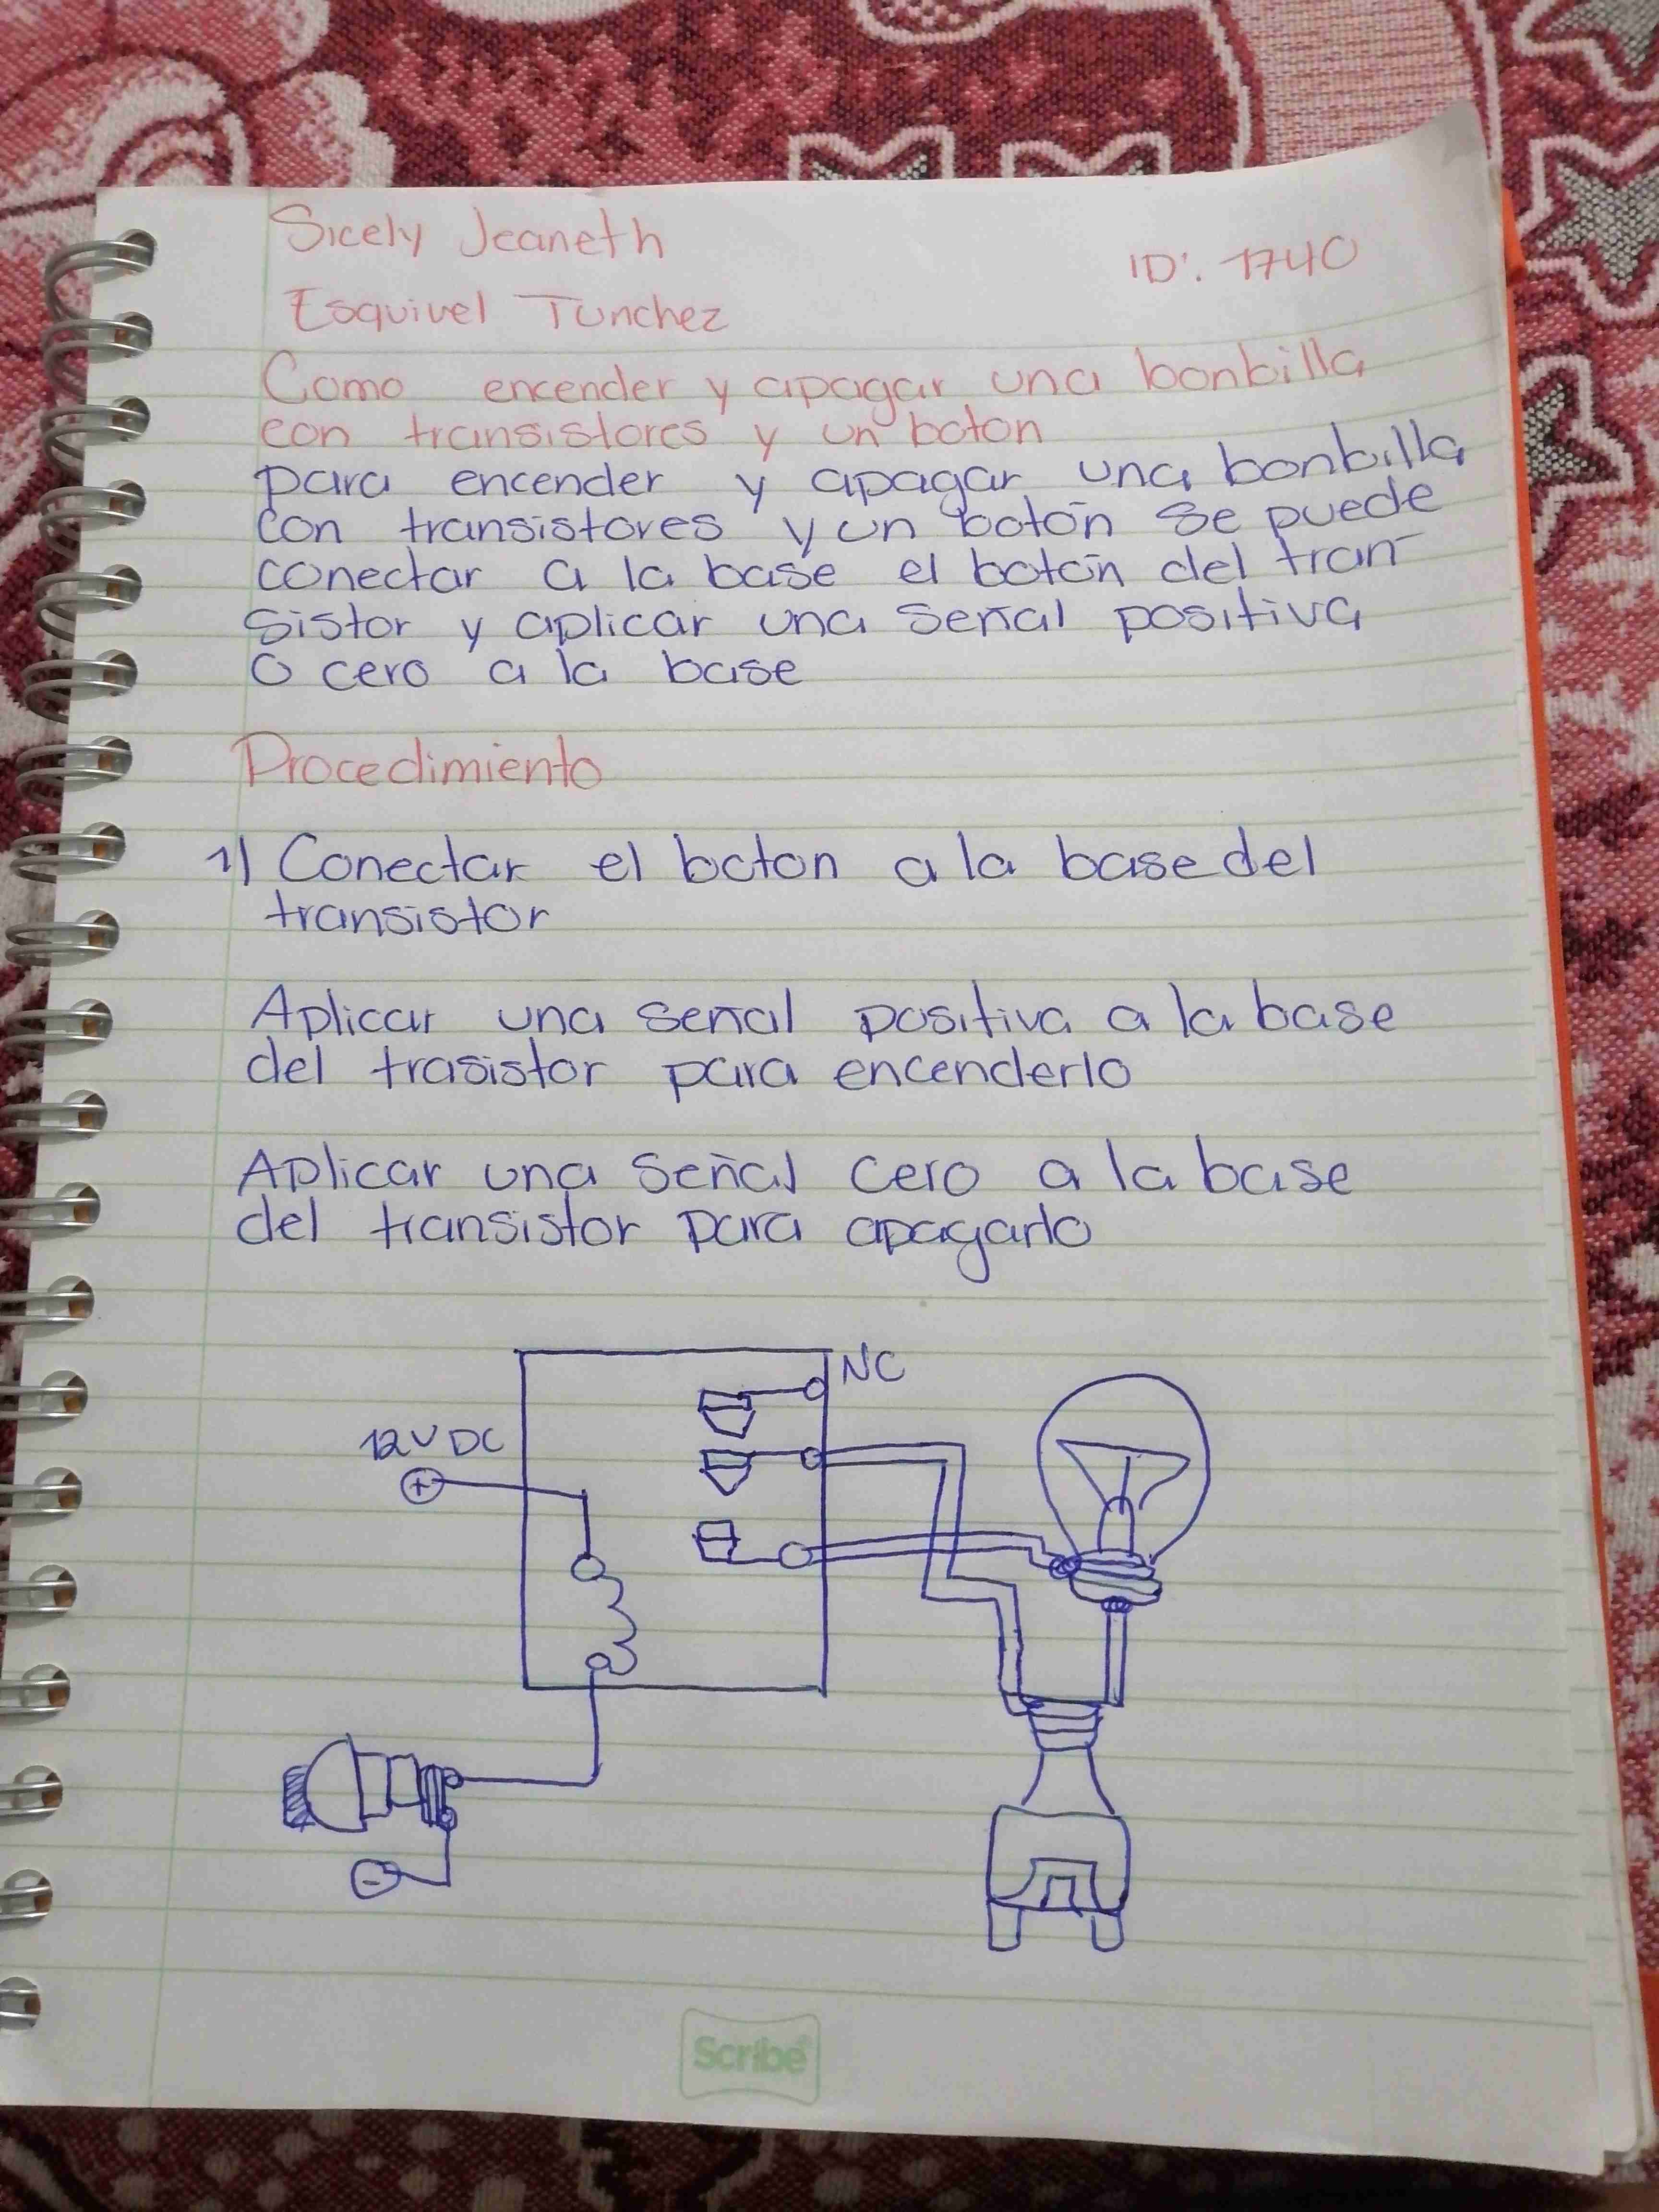 Sicely Jeaneth
ID: 1740
Esquivel Tunchez
Como encender y apagar una bonbilla
con transistores y un boton
para encender y apagar una bonbilla
con transistores y un botón se puede
conectar a la base el botón del tran-
sistor y aplicar una señal positiva
o cero a la base
Procedimiento
1) Conectar el boton a la base del
transistor
Aplicar una señal positiva a la base
del trasistor para encenderlo
Aplicar una señal cero a la base
del transistor para apagarlo
NC
12V DC
+
-
Scribe